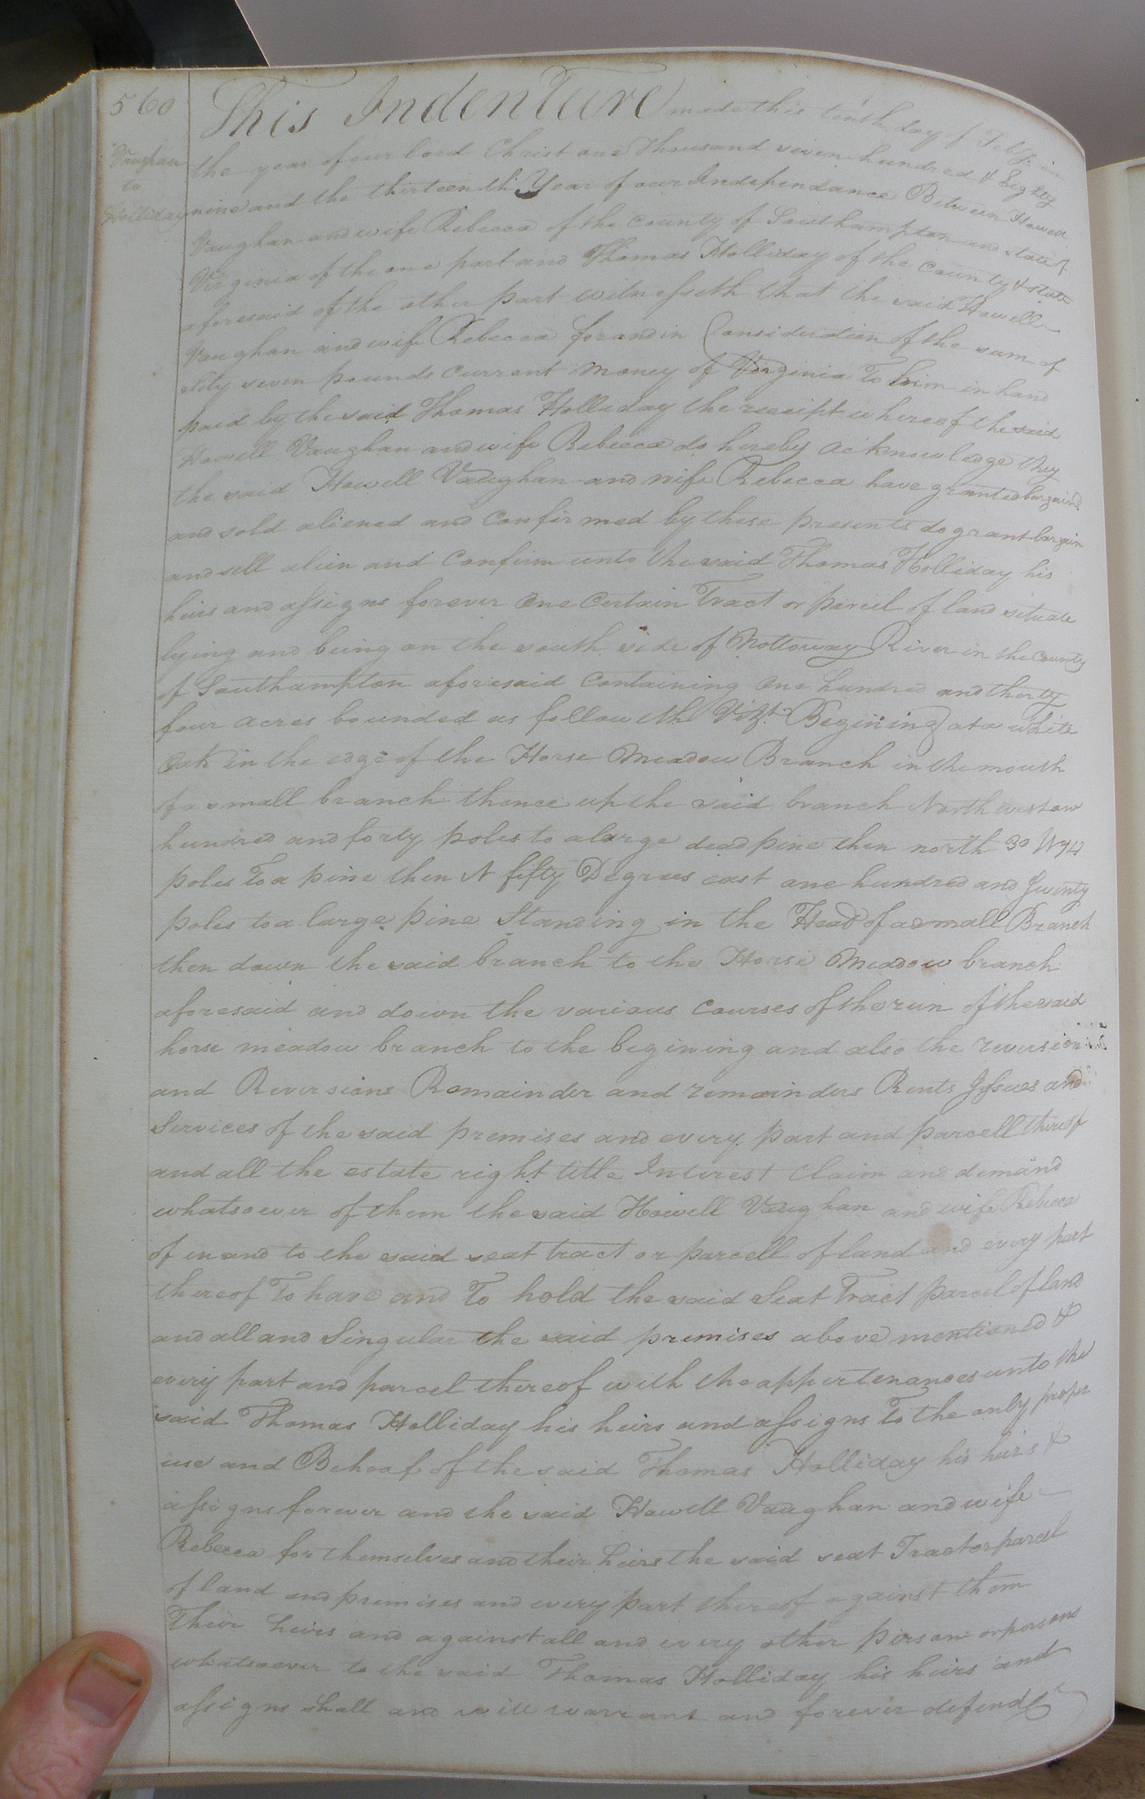 560
Vaughan
to
Holliday
This Indenture made this tenth day of Feby. in
the year of our lord Christ one Thousand seven hundred & Eighty
nine and the thirteenth Year of our Independance Between Howell
Vaughan and wife Rebecca of the county of Southampton and state of
Virginia of the one part and Thomas Holliday of the county & state
aforesaid of the other part witnesseth that the said Howell
Vaughan and wife Rebecca for and in Consideration of the sum of
seven pounds currant money of Virginia To him in hand
paid by the said Thomas Holliday the receipt whereof the said
Howell Vaughan and wife Rebecca do hereby acknowledge they
the said Howell Vaughan and wife Rebecca have granted bargaind
and sold aliened and confirmed by these presents do grant bargain
and sell alien and Confirm unto the said Thomas Holliday his
heirs and assigns forever one certain Tract or parcel of land situate
lying and being on the south side of Nottoway River in the county
of Southampton aforesaid containing one hundred and therty
four acres bounded as followeth Vizt. Begining at a white
oak in the edge of the Horse Meadow Branch in the mouth
of a small branch thence up the said branch North west
hundred and forty poles to a large dead pine then north 30 W
poles To a pine then N fifty Degrees east one hundred and Twenty
poles to a large pine Standing in the Head of a small Branch
then down the said branch to the Horse Meadow branch
aforesaid and down the various courses of the run of the said
horse meadow branch to the begining and also the reversion
and Reversions Remainder and remainders Rents Issues and
Services of the said premises and every part and parcell thereof
and all the estate right title Interest claim and demand
whatsoever of them the said Howell Vaughan and wife Rebecca
of in and to the said seat tract or parcell of land and every part
thereof To have and To hold the said Seat Tract parcel of land
and all and Singular the said premises above mentioned &
every part and parcel thereof with the appertenances unto the
said Thomas Holliday his heirs and assigns To the only proper
use and Behoof of the said Thomas Holliday his heirs &
assigns forever and the said Howell Vaughan and wife
Rebecca for themselves and their heirs the said seat Tract or parcel
of land and premises and every part thereof against them
Their heirs and against all and every other person or persons
whatsoever to the said Thomas Holliday his heirs and
assigns shall and will warrant and forever defend